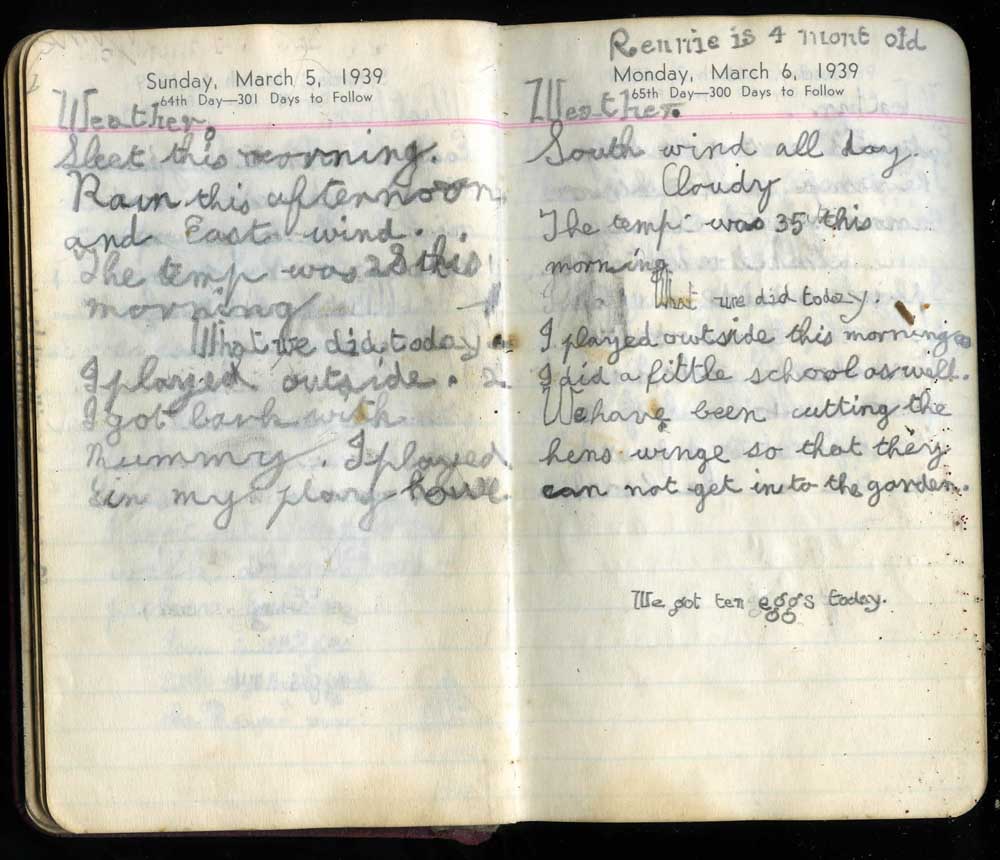 Sunday, March 5, 1939
64th Day—301 Days to Follow
Weather.
Sleet this morning.
Rain this afternoon
and East wind.
The temp was 28 this
morning
What we did today
I played outside.
I got bark with
Mummy. I played
in my play house.
Rennie is 4 mont old
Monday, March 6, 1939
65th Day—300 Days to Follow
Weather.
South wind all day.
Cloudy
The temp was 35 this
morning
What we did today.
I played owtside this morning
I did a little school as well.
We have been cutting the
hens winge so that they
can not get in to the garden.
We got ten eggs today.